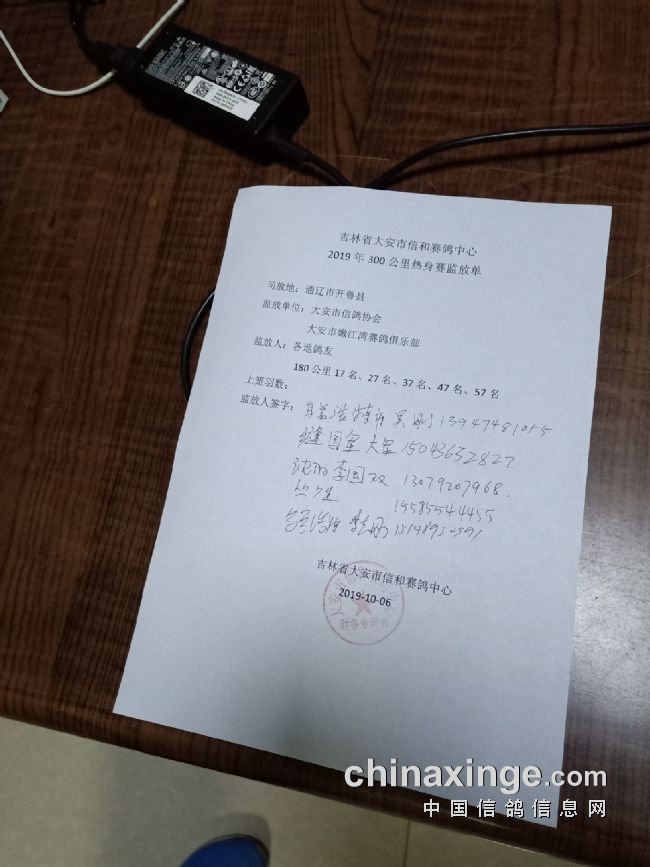 吉林省大安市信和赛鸽中心
2019年300公里热身赛监放单
司放地：通辽市开鲁县
监放单位：大安市信鸽协会
大安市嫩江湾赛鸽俱乐部
监放人：各地鸽友
180公里17名、27名、37名、47名、57名
上笼羽数：
监放人签字：
浩特市 吴刚 13947481055
国奎 大奎 15043632827
李国双 13079207968.
15585544455
吉林省大安市信和赛鸽中心
2019-10-06
财务专用章
DELL
chinaxinge.com
中国信鸽信息网